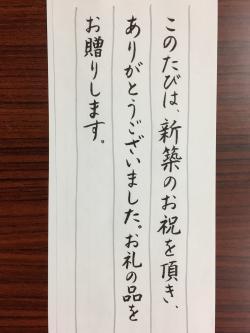 このたびは、新築のお祝を頂き、
ありがとうございました。お礼の品を
お贈りします。